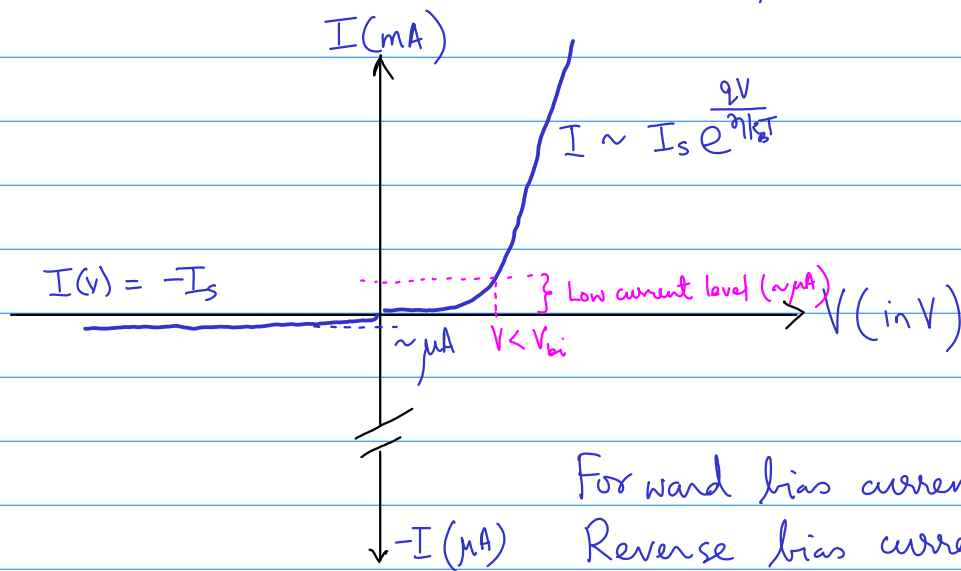 I(mA)
I ~ I_s e^{qV/ηk_BT}
I(v) = -I_s
} Low current level (~μA)
V (in V)
~ μA
V < V_bi
-I (μA)
Forward bias curren
Reverse bias curre